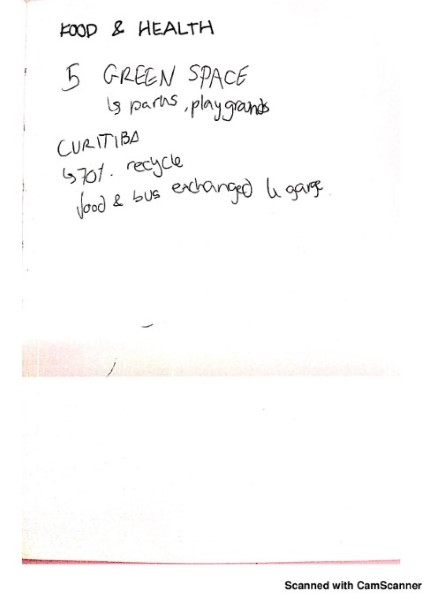 FOOD & HEALTH
5 GREEN SPACE
↳ parks, playgrounds
CURITIBA
↳ 70%. recycle
food & bus exchanged
Scanned with CamScanner